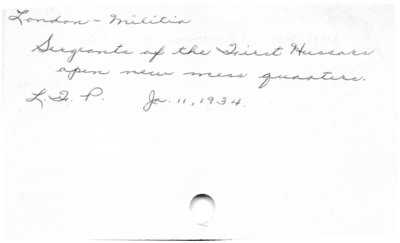 London - Militia
Sergeants of the First Hussars
open new mess quarters.
L. F. P. Ja. 11, 1934.